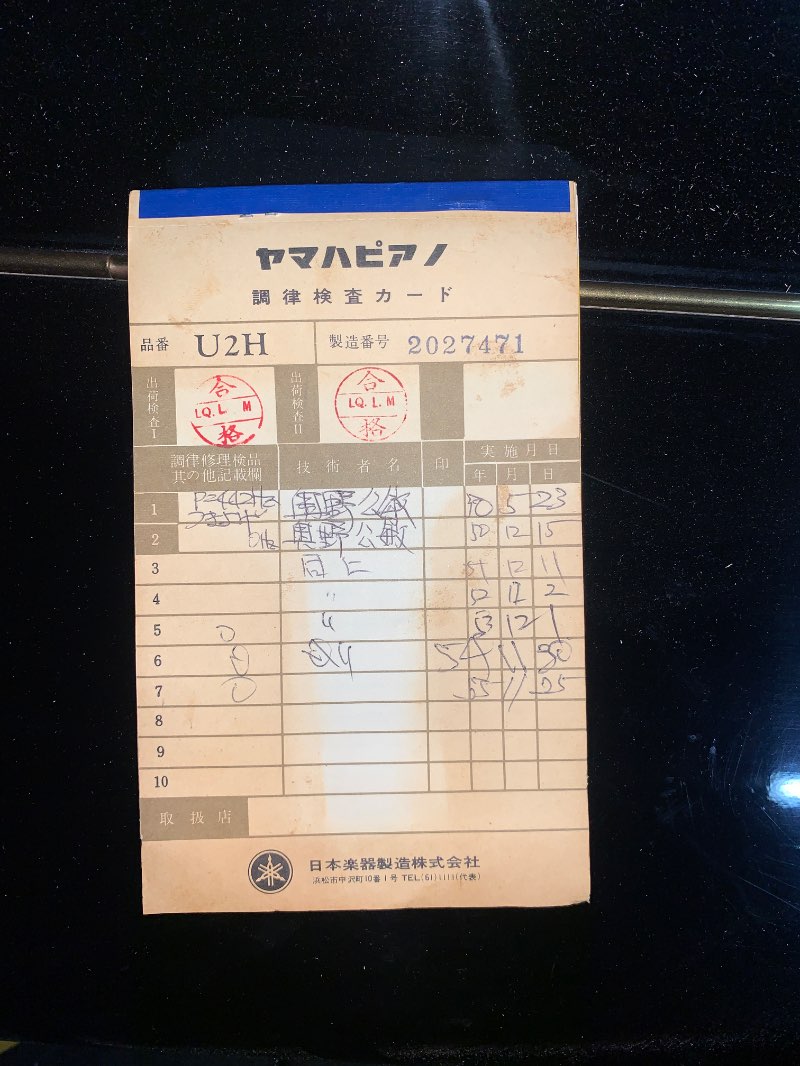 ヤマハピアノ
調律検査カード
品番 U2H 製造番号 2027471
出荷検査I 合格 LQ.L. M 出荷検査II 合格 LQ.L. M
調律修理検品其の他記載欄 技術者名 印 実施月日
年 月 日
1 P=442Hz 公敏 50 5 23
2 奥野公敏 50 12 15
3 同仁 51 12 11
4 〃 52 12 2
5 〃 53 12 1
6 〃 54 11 30
7 55 11 25
8
9
10
取扱店
日本楽器製造株式会社
浜松市中沢町10番1号 TEL(61)1111(代表)